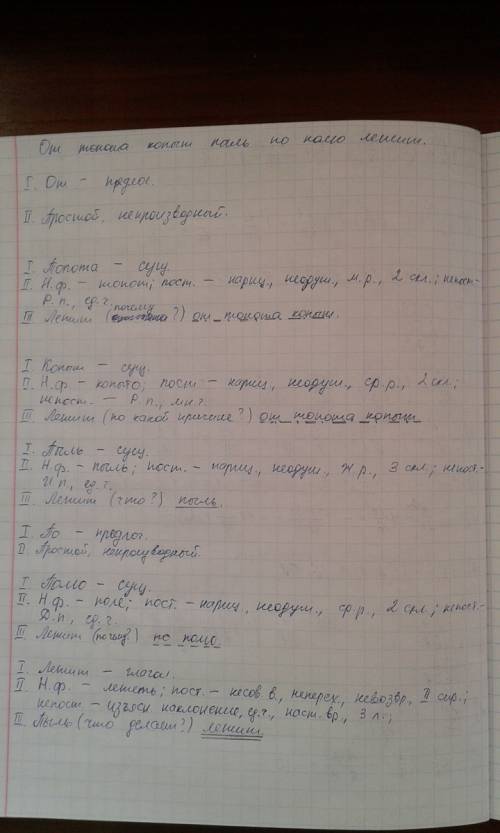 От топота копыт пыль по полю летит.
I. От – предлог.
II. Простой, непроизводный.
I. Топота – сущ.
II. Н.ф. – топот; пост. – нариц., неодуш., м.р., 2 скл.; непост-
Р.п., ед.ч.
почему
III. Летит ( ?) от топота копыт.
I. Копыт – сущ.
II. Н.ф. – копыто; пост. – нариц., неодуш., ср.р., 2 скл.;
непост. – Р.п., мн.ч.
III. Летит (по какой причине?) от топота копыт
I. Пыль – сущ.
II. Н.ф. – пыль; пост. – нариц., неодуш., ж.р., 3 скл.; непост.-
И.п., ед.ч.
III. Летит (что?) пыль.
I. По – предлог.
II. Простой, непроизводный.
I. Полю – сущ.
II. Н.ф. – поле; пост. – нариц., неодуш., ср.р., 2 скл.; непост.-
Д.п., ед.ч.
III. Летит ( ?) по полю.
I. Летит – глагол.
II. Н.ф. – лететь; пост. – несов.в., неперех., невозвр., II спр.;
непост – изъяв. наклонение, ед.ч., наст.вр., 3 л.;
III. Пыль (что делает?) летит.